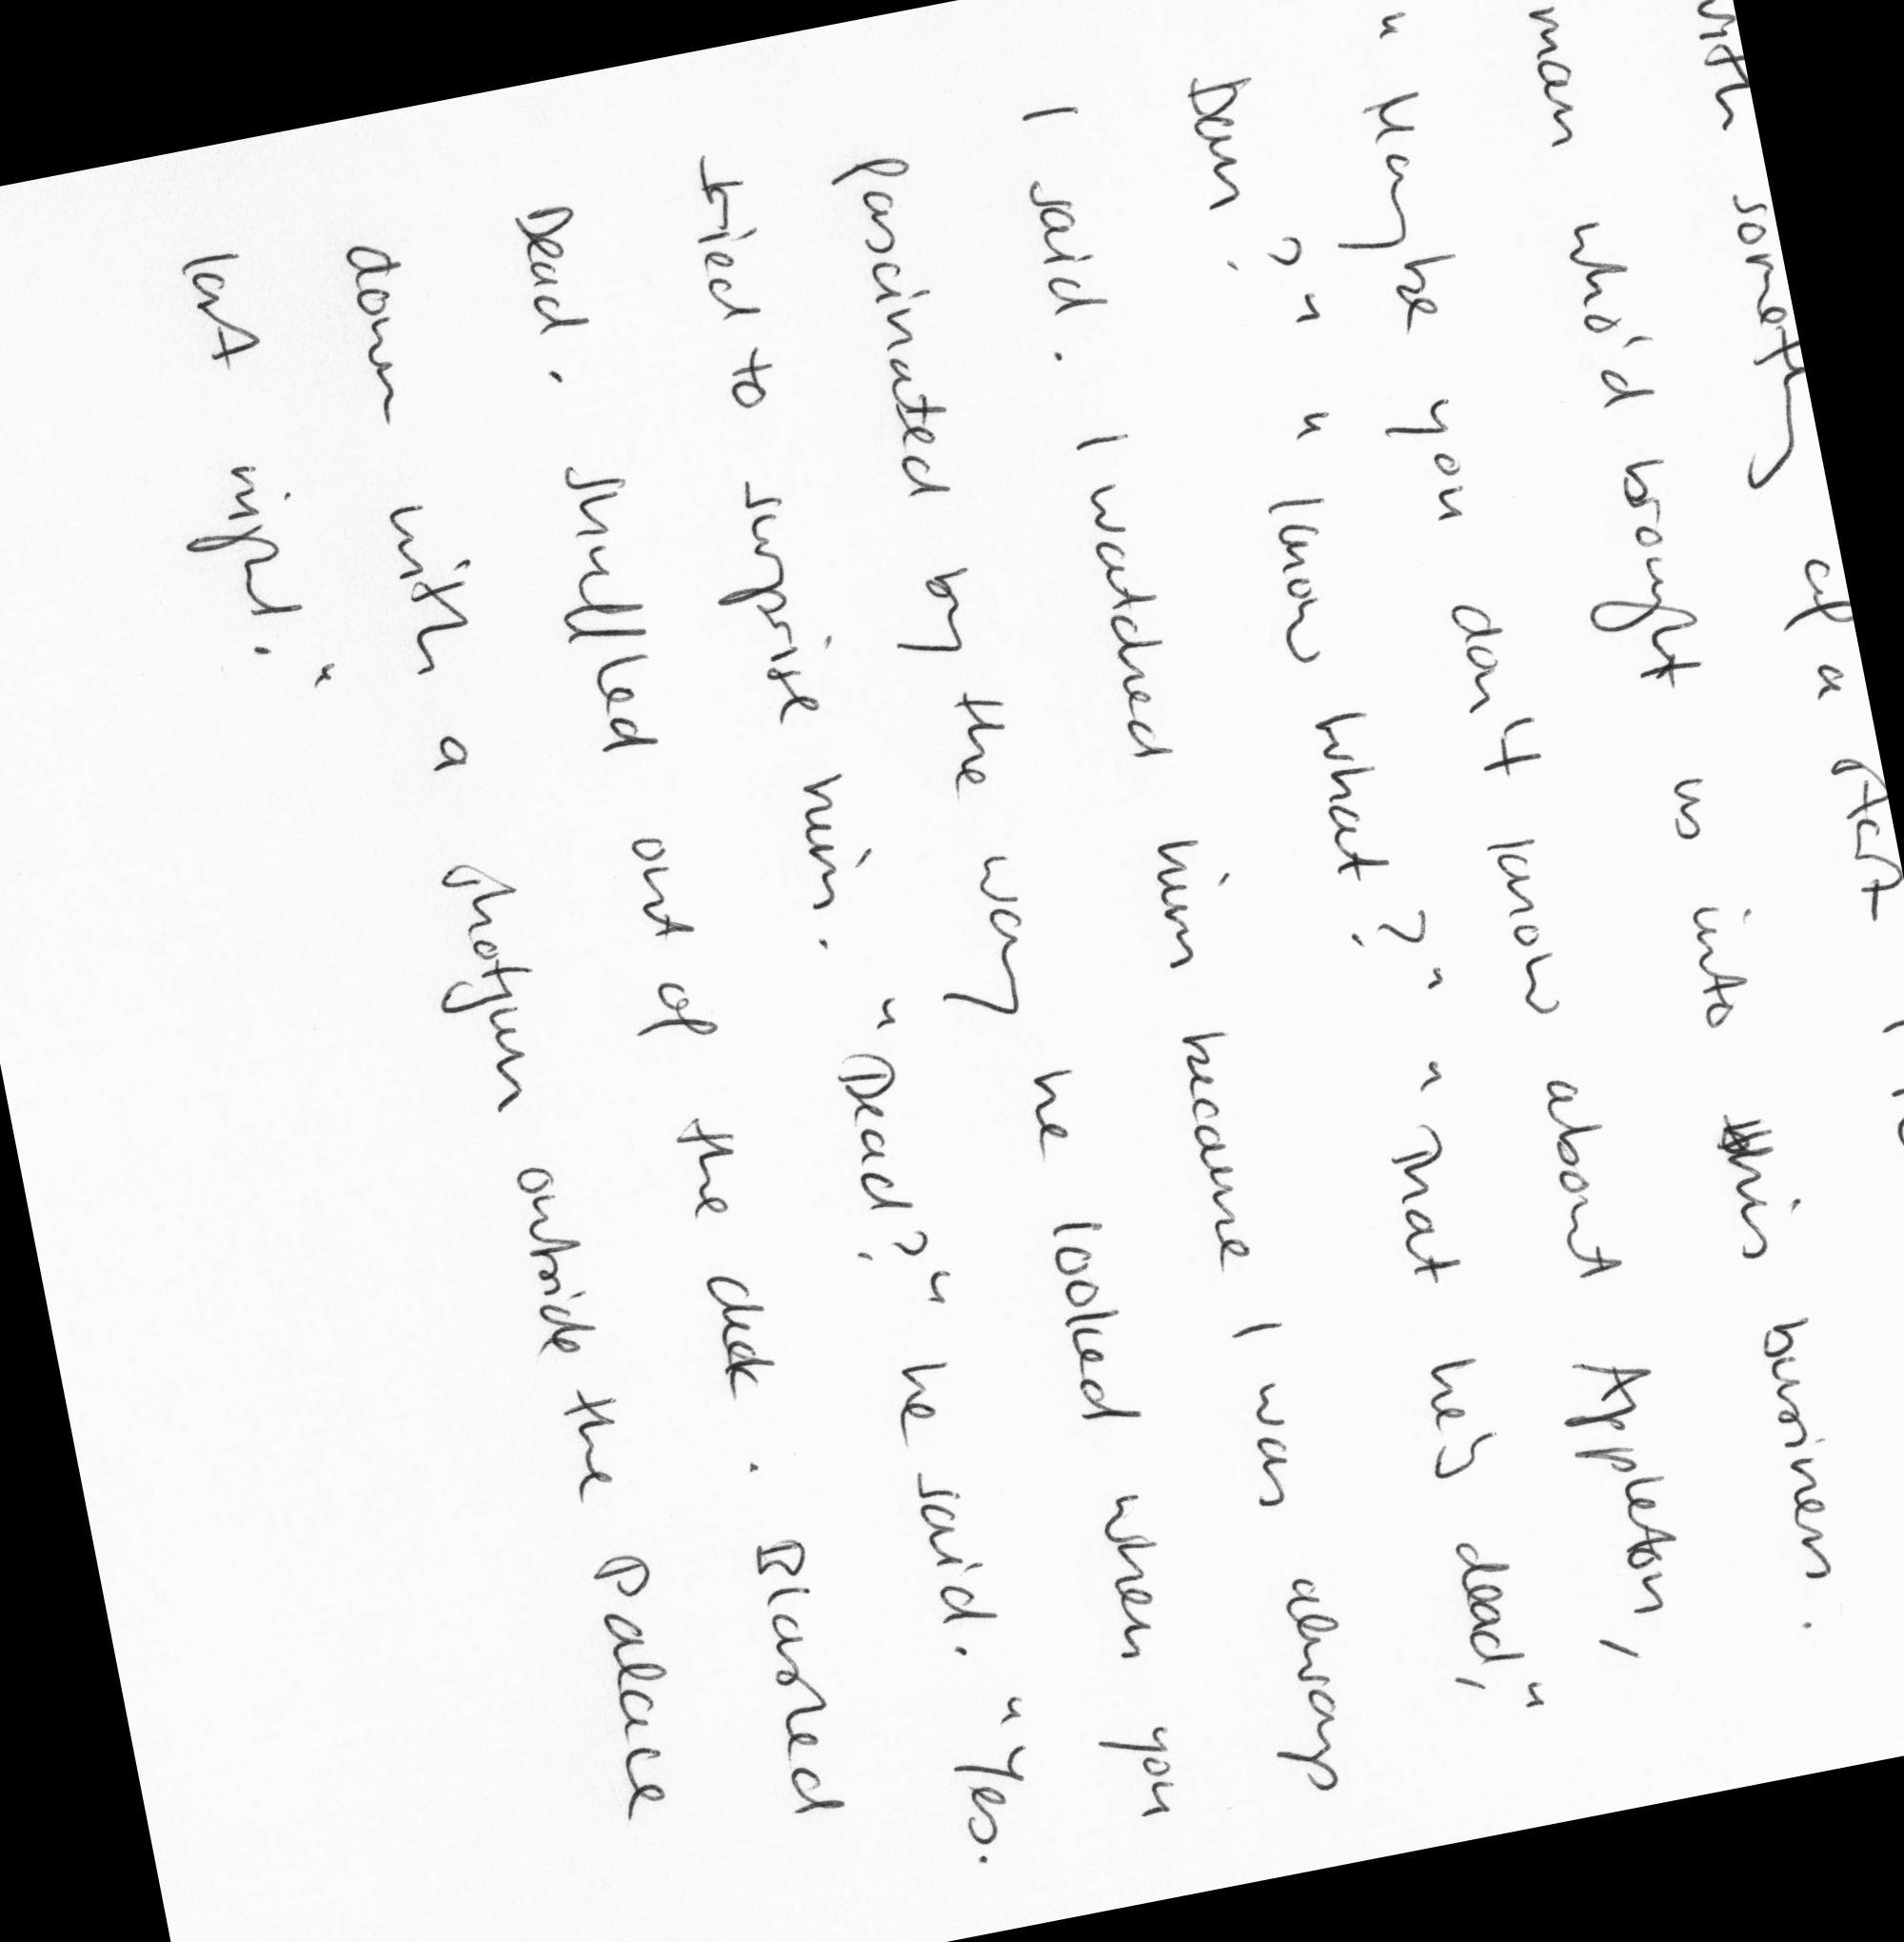 with something of a start
man who'd brought us into this business.
"Maybe you don't know about Appleton,
Dan?" "Know what?" "That he's dead,"
I said. I watched him because I was always
fascinated by the way he looked when you
tried to surprise him. "Dead?" he said. "Yes.
Dead. Snuffled out of the deck. Blasted
down with a shotgun outside the Palace
last night."